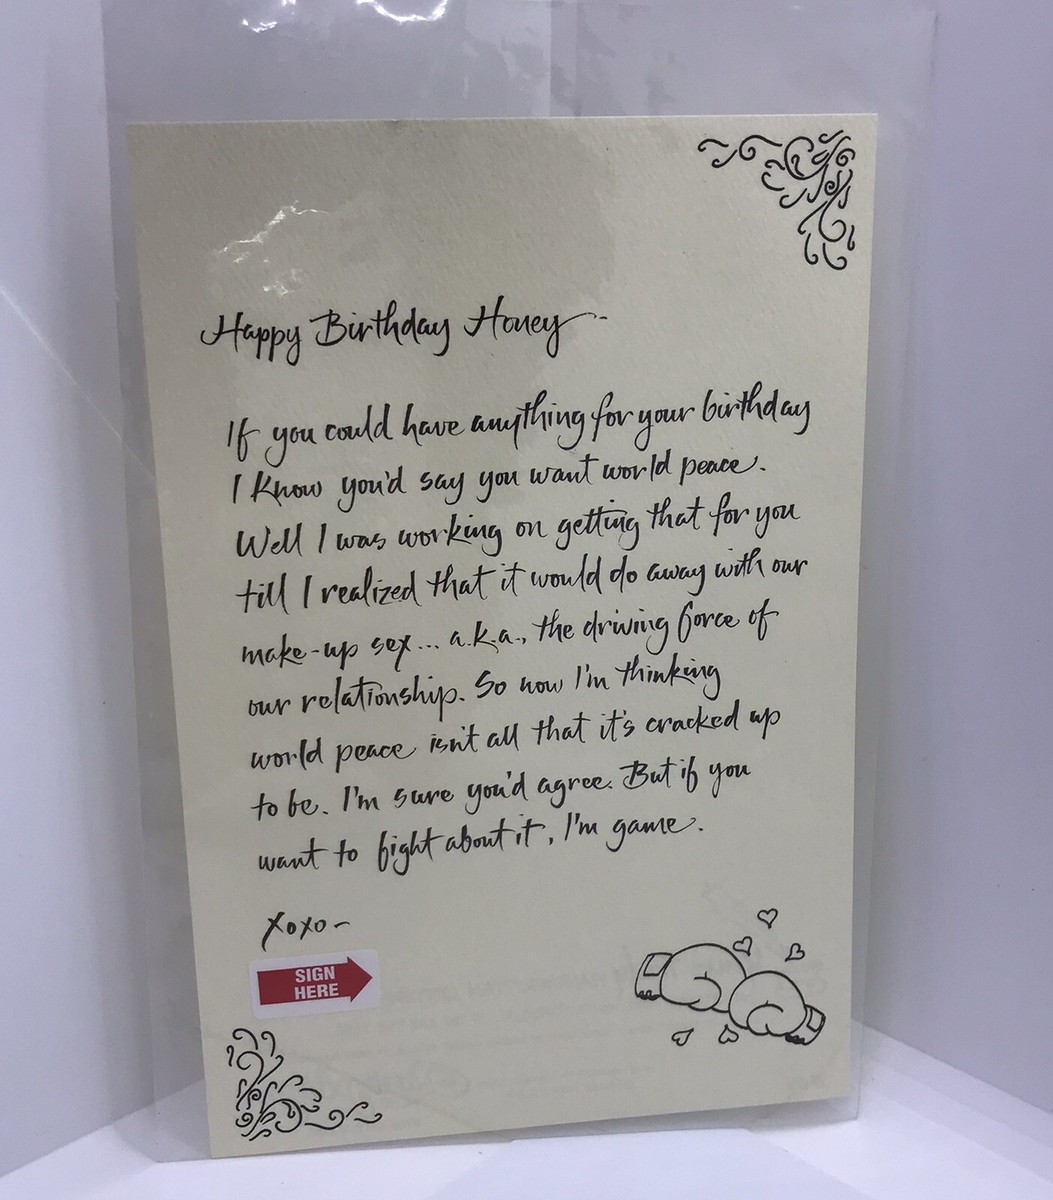 Happy Birthday Honey -
If you could have anything for your birthday
I know you'd say you want world peace.
Well I was working on getting that for you
till I realized that it would do away with our
make-up sex... a.k.a., the driving force of
our relationship. So now I'm thinking
world peace isn't all that it's cracked up
to be. I'm sure you'd agree. But if you
want to fight about it, I'm game.
xoxo -
SIGN
HERE